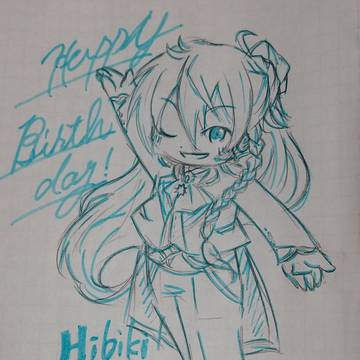 Happy
Birth
day!
Hibiki